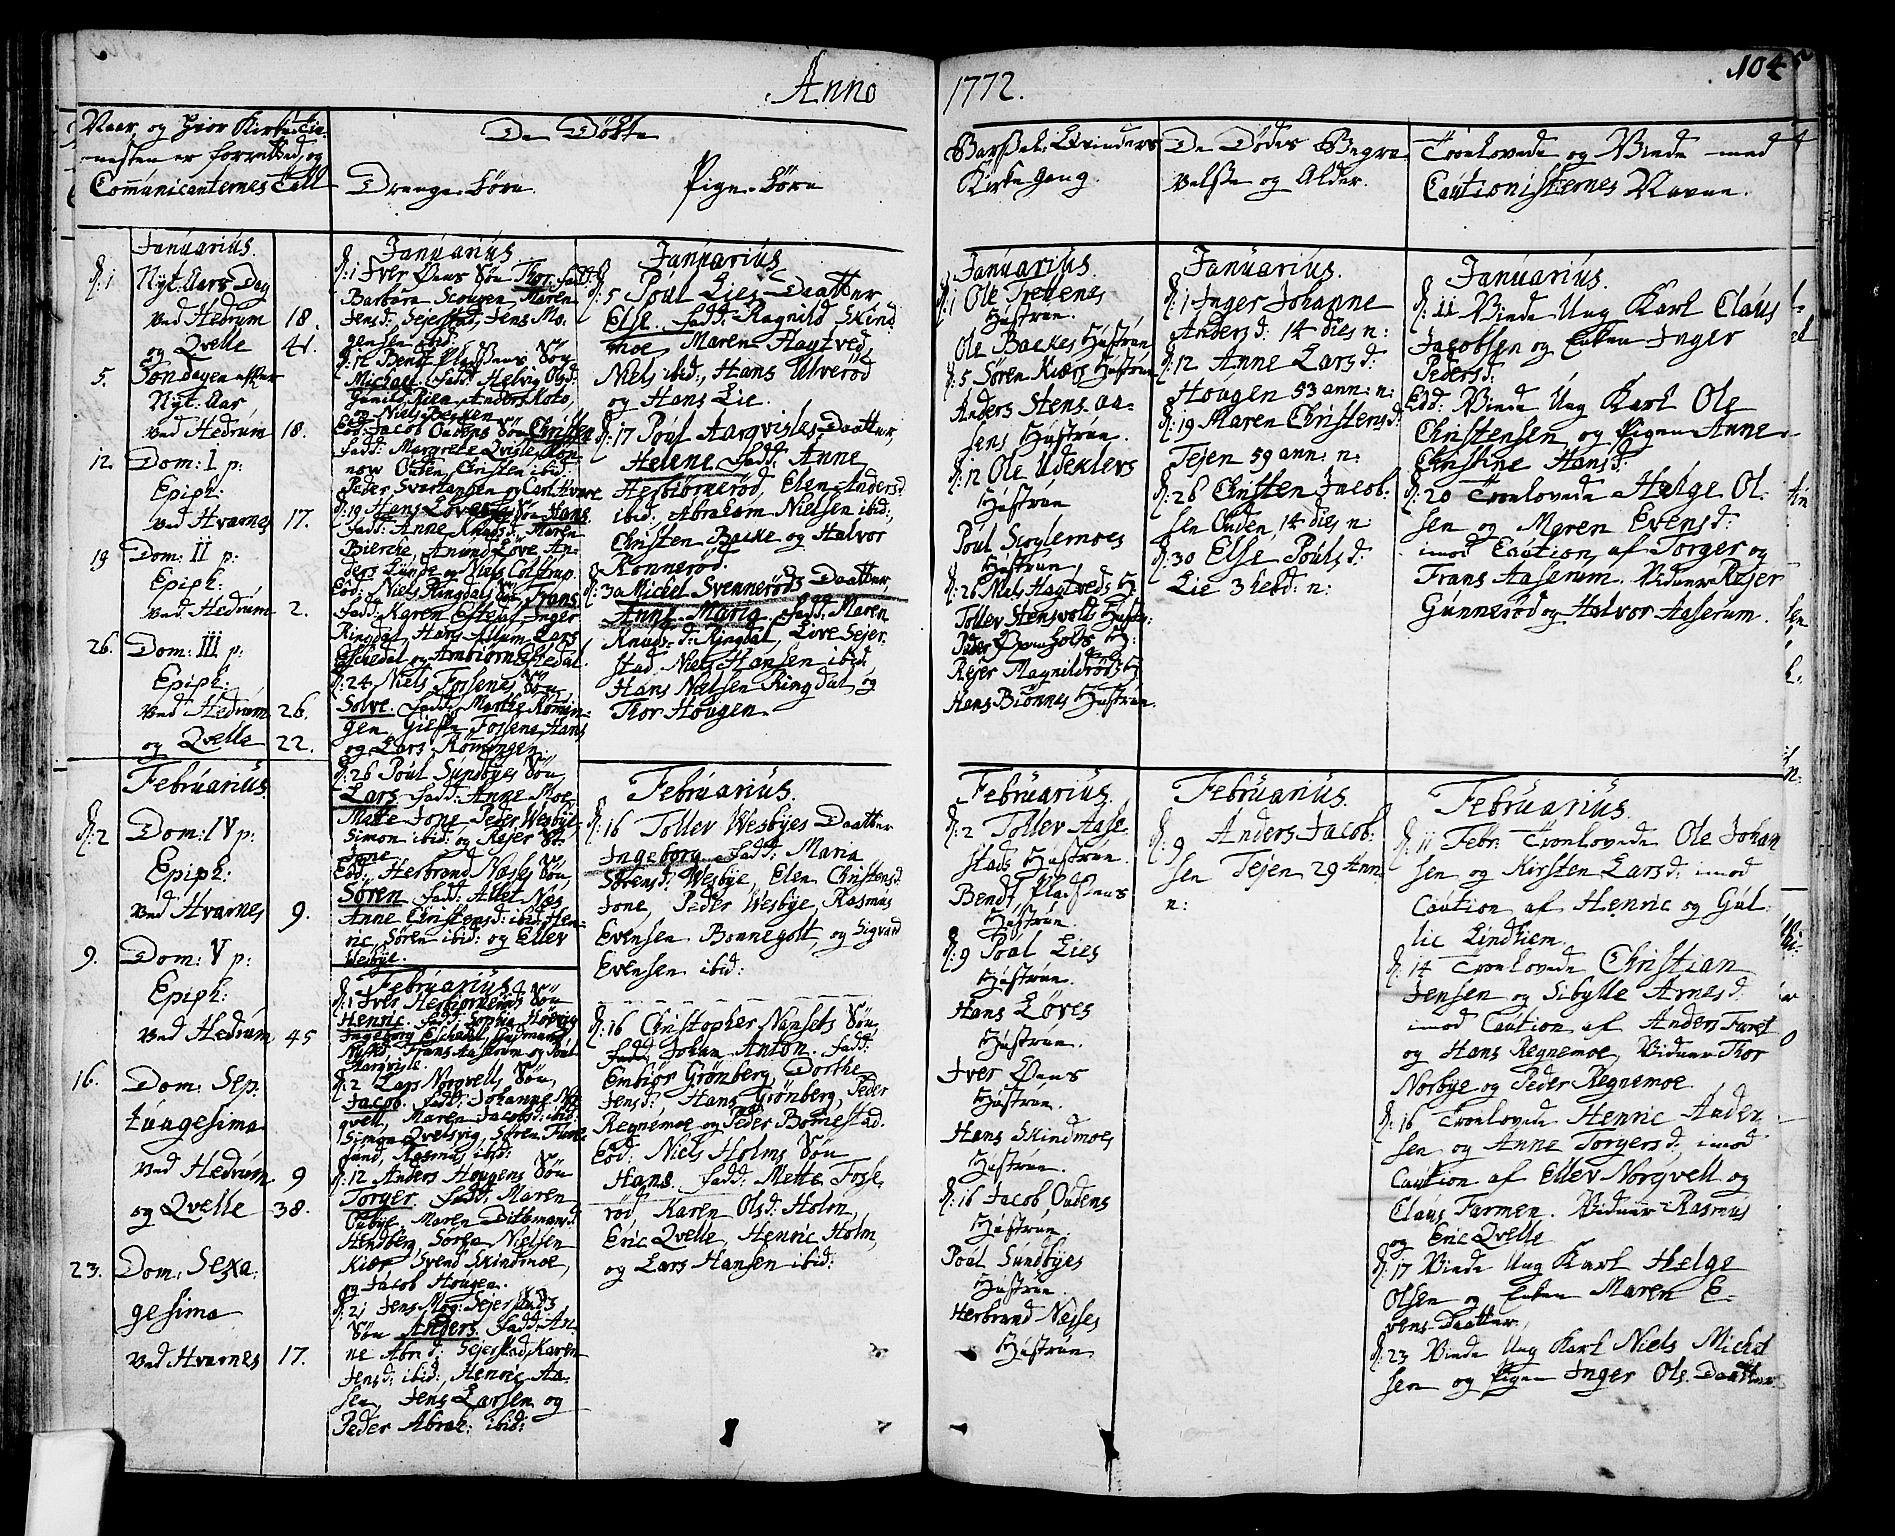 Anno 1772.
104
Naar og hvor Kirketie-
nesten er forretted, og
Comunicanternes Tall
De Døbte
Drenge-Børn.
Pige-Børn
Barsel-Qvinders
Kirkegang.
De Dødes Begra-
velse og Alder.
Troelovede og Viede med
Cautionisternes Navne.
Januarius.
d: 1 Nyt-Aars Dag
ved Hedrum 18.
og Qvelle 41.
5. Søndagen efter
Nyt-Aar
ved Hedrum 18.
12. Dom: I p:
Epiph:
ved Hvarnes 17.
19 Dom: II p:
Epiph:
ved Hedrum 2.
26. Dom: III p:
Epiph:
ved Hedrum 26.
og Qvelle 22.
Februarius
d: 2 Dom: IV p:
Epiph:
ved Hvarnes 9.
9. Dom: V p:
Epiph:
ved Hedrum 45
16. Dom: Sep-
tuagesima
ved Hedrum 9
og Qvelle 38.
23. Dom: Sexa-
gesima
ved Hvarnes 17.
Januarius
d: 1 Iver Oens Søn Thor. fadd:
Barbara Skougen, Maren
Jensd: Sejerstad, Jens Mo-
gensen ibid:
d: 12 Bendt Pladsens Søn
Michael. fadd: Helvig Olsd:
og Niels Becken
Eod: Jacob Oudens Søn Christen
fadd: Margrete Qvisle, Røn-
now Ouden, Christen ibid:
Peder Svartangen og Carl Hvarre
d: 19 Hans Løves Søn Hans
fadd: Anne Knudsd: Maren
Biercke, Anund Løve, An-
ders Lunde og Niels Colstrup.
Eod: Niels Ringdals Søn Frans
fadd: Karen Estedal, Inger
Ringdal, Hans Allum, Lars
Estedal og Ambiørn Estedal.
d: 24 Niels Forsenes Søn
Solve. fadd: Marthe Romun-
gen, Forsene, Hans
og Lars Romungen.
d: 26 Poul Sundbyes Søn
Lars fadd: Anne Moe,
Mette Jone, Peder Wesbye,
Simon ibid: og Rejer
Jone
Eod: Herbrand Næses Søn
Søren fadd: Allet Næs
Anne Christensd: ibid: Hen-
ric, Søren ibid: og Ellev
Wesbye.
Februarius
d: 1 Iver Herbiørnerøds Søn
Henric. fadd: Sophia
Ingeborg Eschedal,
Frans Aaserum og Poul
Aargvisle.
d: 2 Lars Norgvells Søn
Jacob. fadd: Johanne No-
qvell, Maren Jacobsd: ibid:
Simon Qvelsvig, Søren Fure-
sund, Rasmus ibid:
d: 12 Anders Hougens Søn
Torger. fadd: Maren
Oubye, Maren Ditkmansd:
Hendberg, Søren Nielsen
Kiær, Svend Skindmoe,
og Jacob Hougen.
d: 21 Jens Mog: Sejerstads
Søn Anders. fadd: An-
ne Abrd: Sejerstad, Karen
Jensd: ibid:, Henric Aa-
sen, Jens Larsen og
Peder Abrah: ibid:
Januarius
d: 5 Poul Lies Daatter
Else. fadd: Ragnild Skind-
moe, Maren Hagtved,
Niels ibid:, Hans Ulverød
og Hans Lie.
d: 17 Poul Aargvisles Daatter
Helene. fadd: Anne
Herbiørnerød, Elen Andersd:
ibid:, Abraham Nielsen ibid:,
Christen Backe og Halvor
Ronnerød.
d: 30 Michel Svennerøds Daatter
Anne Maria fadd: Maren
Knudsd: Ringdal, Live Sejer-
stad, Niels Hansen ibid,
Hans Nielsen Ringdal, og
Thor Hougen.
Februarius.
d: 16 Tollev Wesbyes Daatter
Ingeborg fadd: Maria
Sørensd: Wesbye, Elen Christensd:
Jone, Peder Wesbye, Rasmus
Evensen Bonnegolt, og Sigvard
Evensen ibid:
d: 16 Christopher Nansets Søn
Johan Anton. fadd:
Embiør Grønberg, Dorthe
Jensd: Hans Grønberg, Peder
Regnemoe og Peder Bonnestad.
Eod: Niels Holms Søn
Hans. fadd: Mette Torse-
rød, Karen Olsd: Holm,
Eric Qvelle, Henric Holm,
og Lars Hansen ibid:
Januarius.
d: 1 Ole Trellenes
Hustrue.
Ole Backes Hustrue
d: 5 Søren Kiærs Hustrue
Anders Stens-aa-
sens Hustrue.
d: 12 Ole Udeklevs
Hustrue
Poul Scoglemoes
Hustrue,
d: 26 Niels Hagtveds H
Tollev Stensvold Hustr:
Rejer Magnildrøds H
Hans Biønnes Hustrue.
Februarius.
d: 2 Tollev Aase-
stads Hustrue.
Bendt Pladsens
Hustrue.
d: 9 Poul Lies
Hustrue.
Hans Løves
Hustrue.
Iver Oens
Hustrue.
Hans Skindmoes
Hustrue.
d: 16 Jacob Oudens
Hustrue
Poul Sundbyes
Hustrue.
Herbrand Næsses
Hustrue
Januarius.
d: 1 Inger Johanne
Andersd: 14 dies n:
d: 12 Anne Larsd:
Hougen 53 ann: n:
d: 19 Maren Christensd:
Tejen 59 ann: n:
d: 26 Christen Jacob-
sen Ouden, 14 dies n:
d: 30 Else Poulsd:
Lie 3 hebd: n:
Februarius.
d: 9 Anders Jacob-
sen Tejen 29 Ann:
n:
Januarius.
d: 11 Viede Ung Karl Claus
Jacobsen og Enken Inger
Pedersd:
Eod: Viede Ung Karl Ole
Christensen og Pigen Anne
Christine Hansd:
d: 20 Troelovede Helge Ol-
sen og Maren Evensd:
imod Caution af Torger og
Frans Aaserum. Vidner Rejer
Gunnerød og Halvor Aaserum.
Februarius.
d: 11 Febr: Troelovede Ole Johan-
sen og Kirsten Larsd: imod
Caution af Henric og Gul-
lic Lindhiem.
d: 14 Troelovede Christian
Jensen og Sibylle Arnesd:
imod Caution af Anders Furest
og Hans Regnemoe, Vidner Thor
Norbye og Peder Regnemoe
d: 16 Troelovede Henric Ander-
sen og Anne Torgersd: imod
Caution af Ellev Norgvell og
Claus Farmen. Vidner Rasmus
og Eric Qvelle
d: 17 Viede Ung Karl Helge
Olsen og Enken Maren E-
vens-Daatter,
d: 23 Viede Ung Karl Niels Michel-
sen og Pigen Inger Ols-Daatter